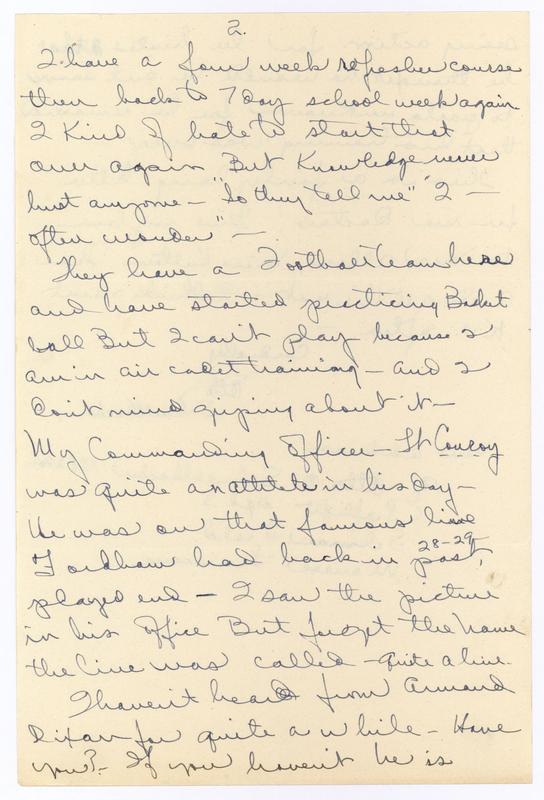 2.
I have a four week refresher course
then back to 7 day school week again
I Kind of hate to start that
over again But Knowledge never
hurt anyone - "So they tell me" "I
often wonder" -
They have a Football team here
and have started practicing Basket
ball But I can't play because I
am in air cadet training - and I
don't mind griping about it -
My Commanding Officer - Lt Conroy
was quite an athlete in his day -
He was on that famous line
Fordham had back in 28-29 past,
played end - I saw the picture
in his office But forget the name
the line was called - quite a line.
I haven't heard from Armand
Dixon for quite a while - Have
you? - If you haven't he is